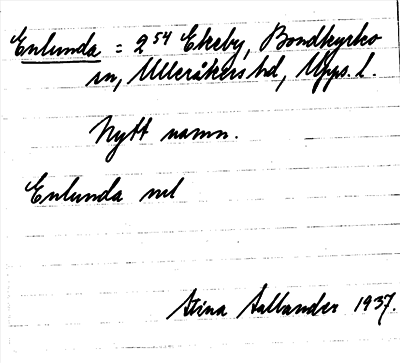 Enlunda = 2⁵⁴ Ekeby, Bondkyrko
sn, Ulleråkers hd, Upps. l.
Nytt namn.
Enlunda
Stina 1937.